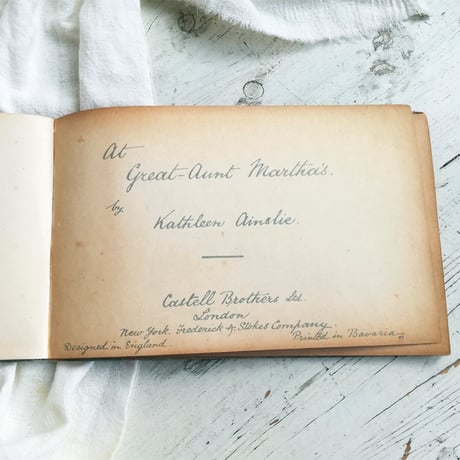 At
Great-Aunt Martha's.
by
Kathleen Ainslie.
Castell Brothers Ltd.
London
New York. Frederick A. Stokes Company.
Designed in England.
Printed in Bavaria